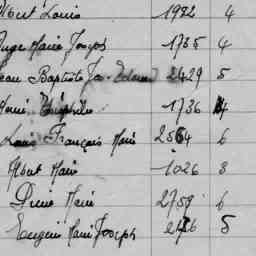 Albert Louis 1982 4
Ange Marie Joseph 1735 4
Jean Baptiste 2429 5
Marie Théophile 1736 4
Louis François Marie 2564 6
Albert Marie 1026 3
Pierre Marie 2759 6
Eugène Marie Joseph 2186 5